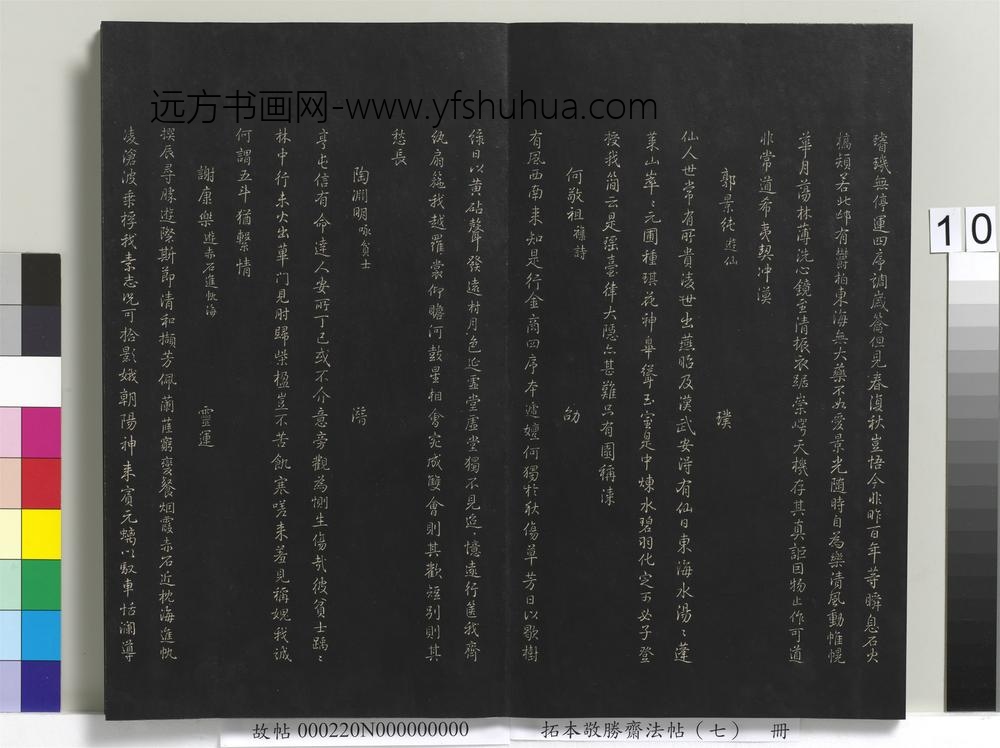 远方书画网-www.yfshuhua.com
璿璣無停運四序調歲籥但見春復秋豈悟今非昨百年等瞬息石火
槁頰若此邙有鬱柏東海無大藥不如愛景光隨時自為樂清風動帷幌
華月蕩林薄洗心鏡至清振衣踞崇崿天機存其真詎因物止作可道
非常道希夷契冲漠
郭景純遊仙 璞
仙人世常有所貴凌世出燕昭及漢武安得有仙日東海水湯々蓬
萊山崒々元圃種琪花神皋聳玉室是中煉水碧羽化定可必予登
授我簡云是瑶臺律大隱亦甚難只有園稱漆
何敬祖襍詩 劭
有風西南来知是行金商四序本遞嬗何獨於秋傷草芳日以歇樹
綠日以黄砧聲發遠村月色延虛堂虛堂獨不見迢々憶遠行篋我齊
紈扇箍我越羅裳仰瞻河鼓星相會究成雙會則其歡短別則其
愁長
陶淵明咏貧士 潛
亨屯信有命達人安所丁已或不介意旁觀為惻生傷哉彼貧士踽々
林中行未火出蓽門見肘歸柴楹豈不苦飢寒嗟来羞見稱娩我誠
何謂五斗猶繫情
謝康樂遊赤石進帆海 靈運
撰辰尋勝遊際斯節清和擷芳佩蘭蕕窮變餐烟霞赤石近枕海進帆
凌滄波乘桴我素志況可拾影娥朝陽神来賓元螭以馭車恬瀾導
10
故帖 000220N000000000
拓本敬勝齋法帖（七） 冊